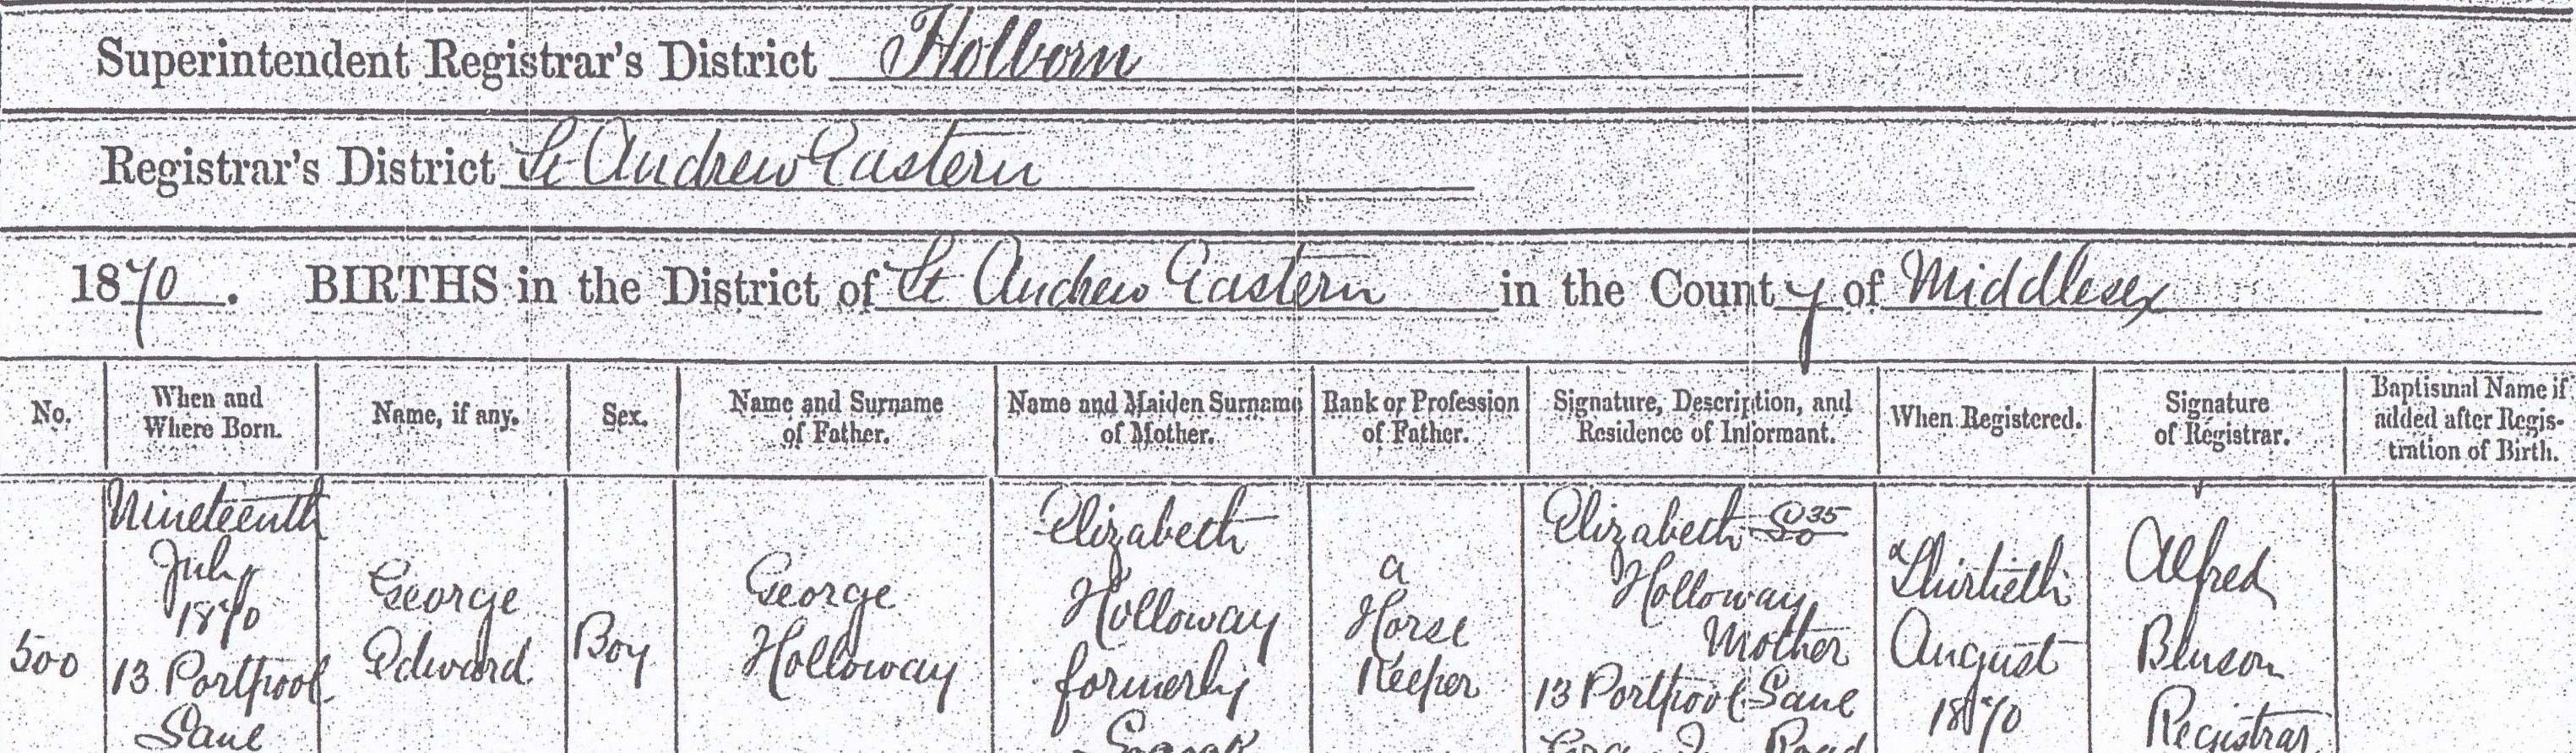 Superintendent Registrar's District Holborn
Registrar's District St Andrew Eastern
1870. BIRTHS in the District of St Andrew Eastern in the County of Middlesex
No.
When and
Where Born.
Name, if any.
Sex.
Name and Surname
of Father.
Name and Maiden Surname
of Mother.
Rank or Profession
of Father.
Signature, Description, and
Residence of Informant.
When Registered.
Signature
of Registrar.
Baptismal Name if
added after Regis-
tration of Birth.
500
Nineteenth
July
1870
13 Portpool
Lane
George
Edward
Boy
George
Holloway
Elizabeth
Holloway
formerly
a
Horse
Keeper
Elizabeth
Holloway
Mother
13 Portpool Lane
Road
Thirtieth
August
1870
Alfred
Benson
Registrar